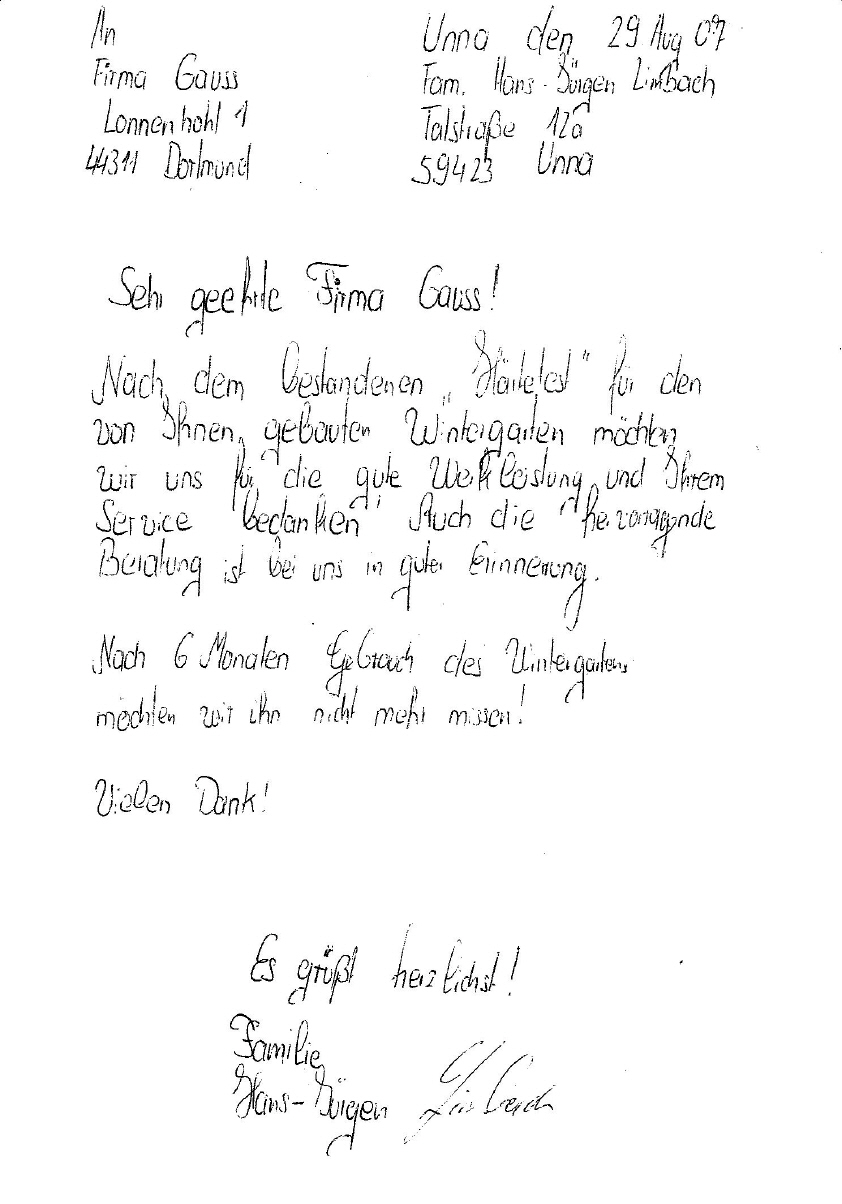 An
Firma Gauss
Lonnenhohl 1
44311 Dortmund
Unna den 29 Aug 07
Fam. Hans-Jürgen Limbach
Talstraße 12a
59423 Unna
Sehr geehrte Firma Gauss!
Nach dem bestandenen „Härtetest" für den
von Ihnen gebauten Wintergarten möchten
wir uns für die gute Werkleistung und Ihrem
Service bedanken. Auch die hervorragende
Beratung ist bei uns in guter Erinnerung.
Nach 6 Monaten Gebrauch des Wintergartens
möchten wir ihn nicht mehr missen!
Vielen Dank!
Es grüßt herzlichst!
Familie
Hans-Jürgen Limbach